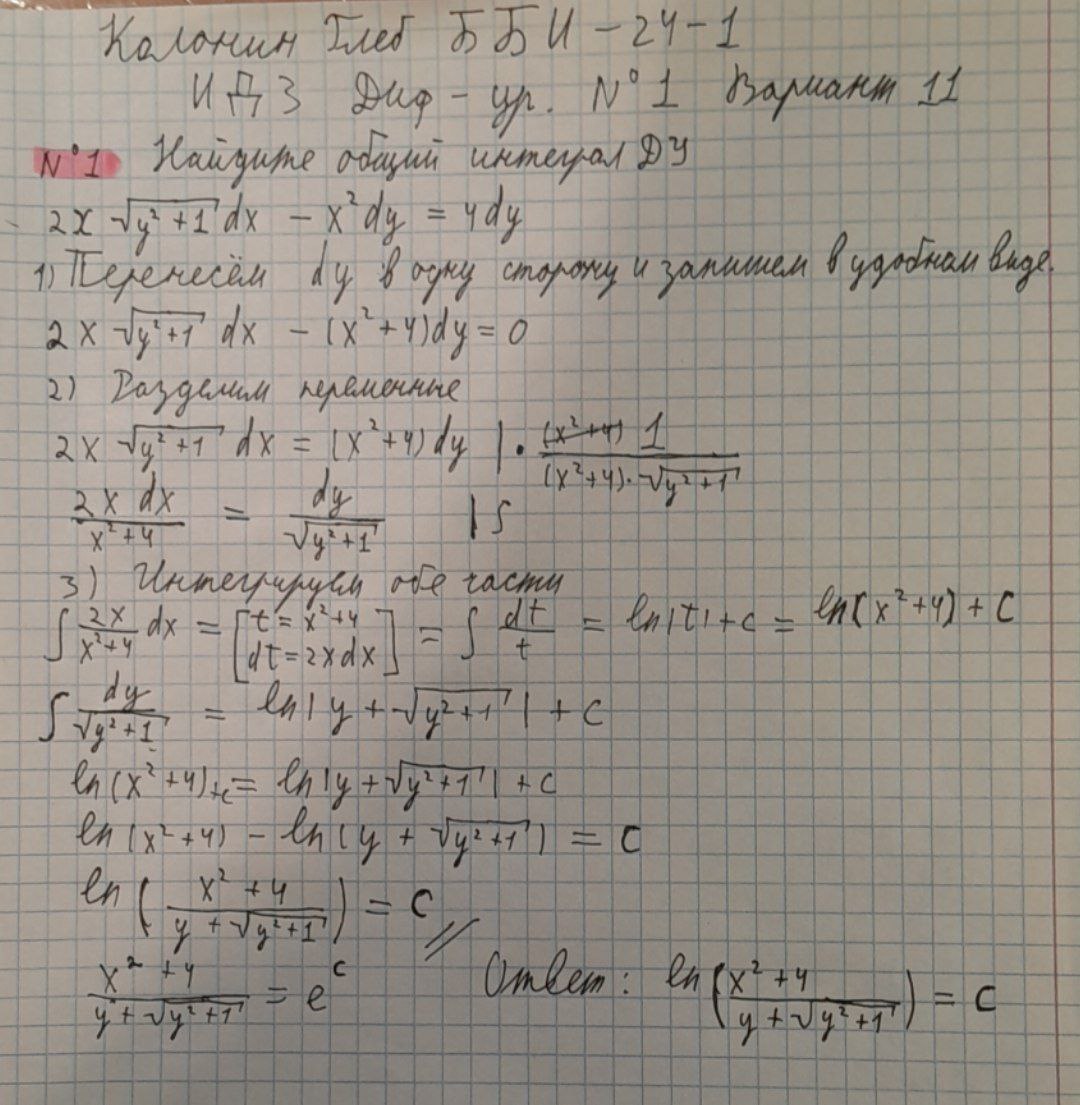 Калонин Глеб ББИ-24-1
ИДЗ Диф-ур. №1 Вариант 11
№1 Найдите общий интеграл ДУ
2x √(y²+1) dx - x²dy = 4dy
1) Перенесём dy в одну сторону и запишем в удобном виде.
2x √(y²+1) dx - (x²+4)dy = 0
2) Разделим переменные
2x √(y²+1) dx = (x²+4)dy | · 1/((x²+4)·√(y²+1))
2x dx/(x²+4) = dy/√(y²+1) | ∫
3) Интегрируем обе части
∫ 2x/(x²+4) dx = [t = x²+4; dt = 2xdx] = ∫ dt/t = ln|t| + c = ln(x²+4) + C
∫ dy/√(y²+1) = ln|y + √(y²+1)| + C
ln(x²+4)+c = ln|y + √(y²+1)| + C
ln(x²+4) - ln(y + √(y²+1)) = C
ln((x²+4)/(y + √(y²+1))) = C
(x²+4)/(y + √(y²+1)) = e^c Ответ: ln((x²+4)/(y + √(y²+1))) = C